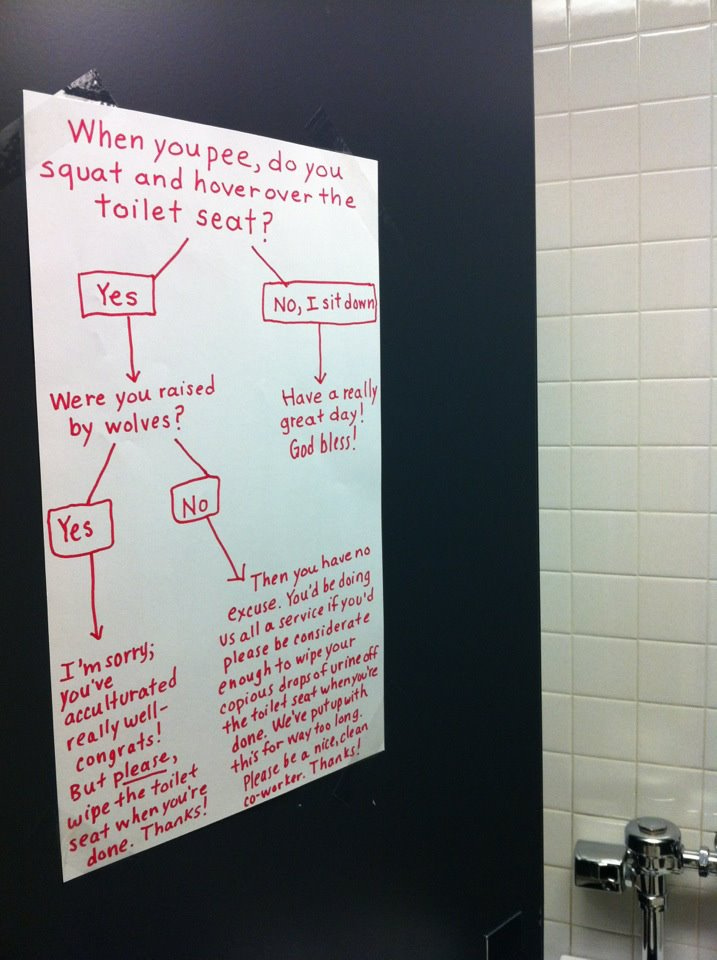 When you pee, do you
squat and hover over the
toilet seat?
Yes
No, I sit down
Were you raised
by wolves?
Have a really
great day!
God bless!
Yes
No
I'm sorry;
you've
acculturated
really well-
congrats!
But please,
wipe the toilet
seat when you're
done. Thanks!
Then you have no
excuse. You'd be doing
us all a service if you'd
please be considerate
enough to wipe your
copious drops of urine off
the toilet seat when you're
done. We've put up with
this for way too long.
Please be a nice, clean
co-worker. Thanks!